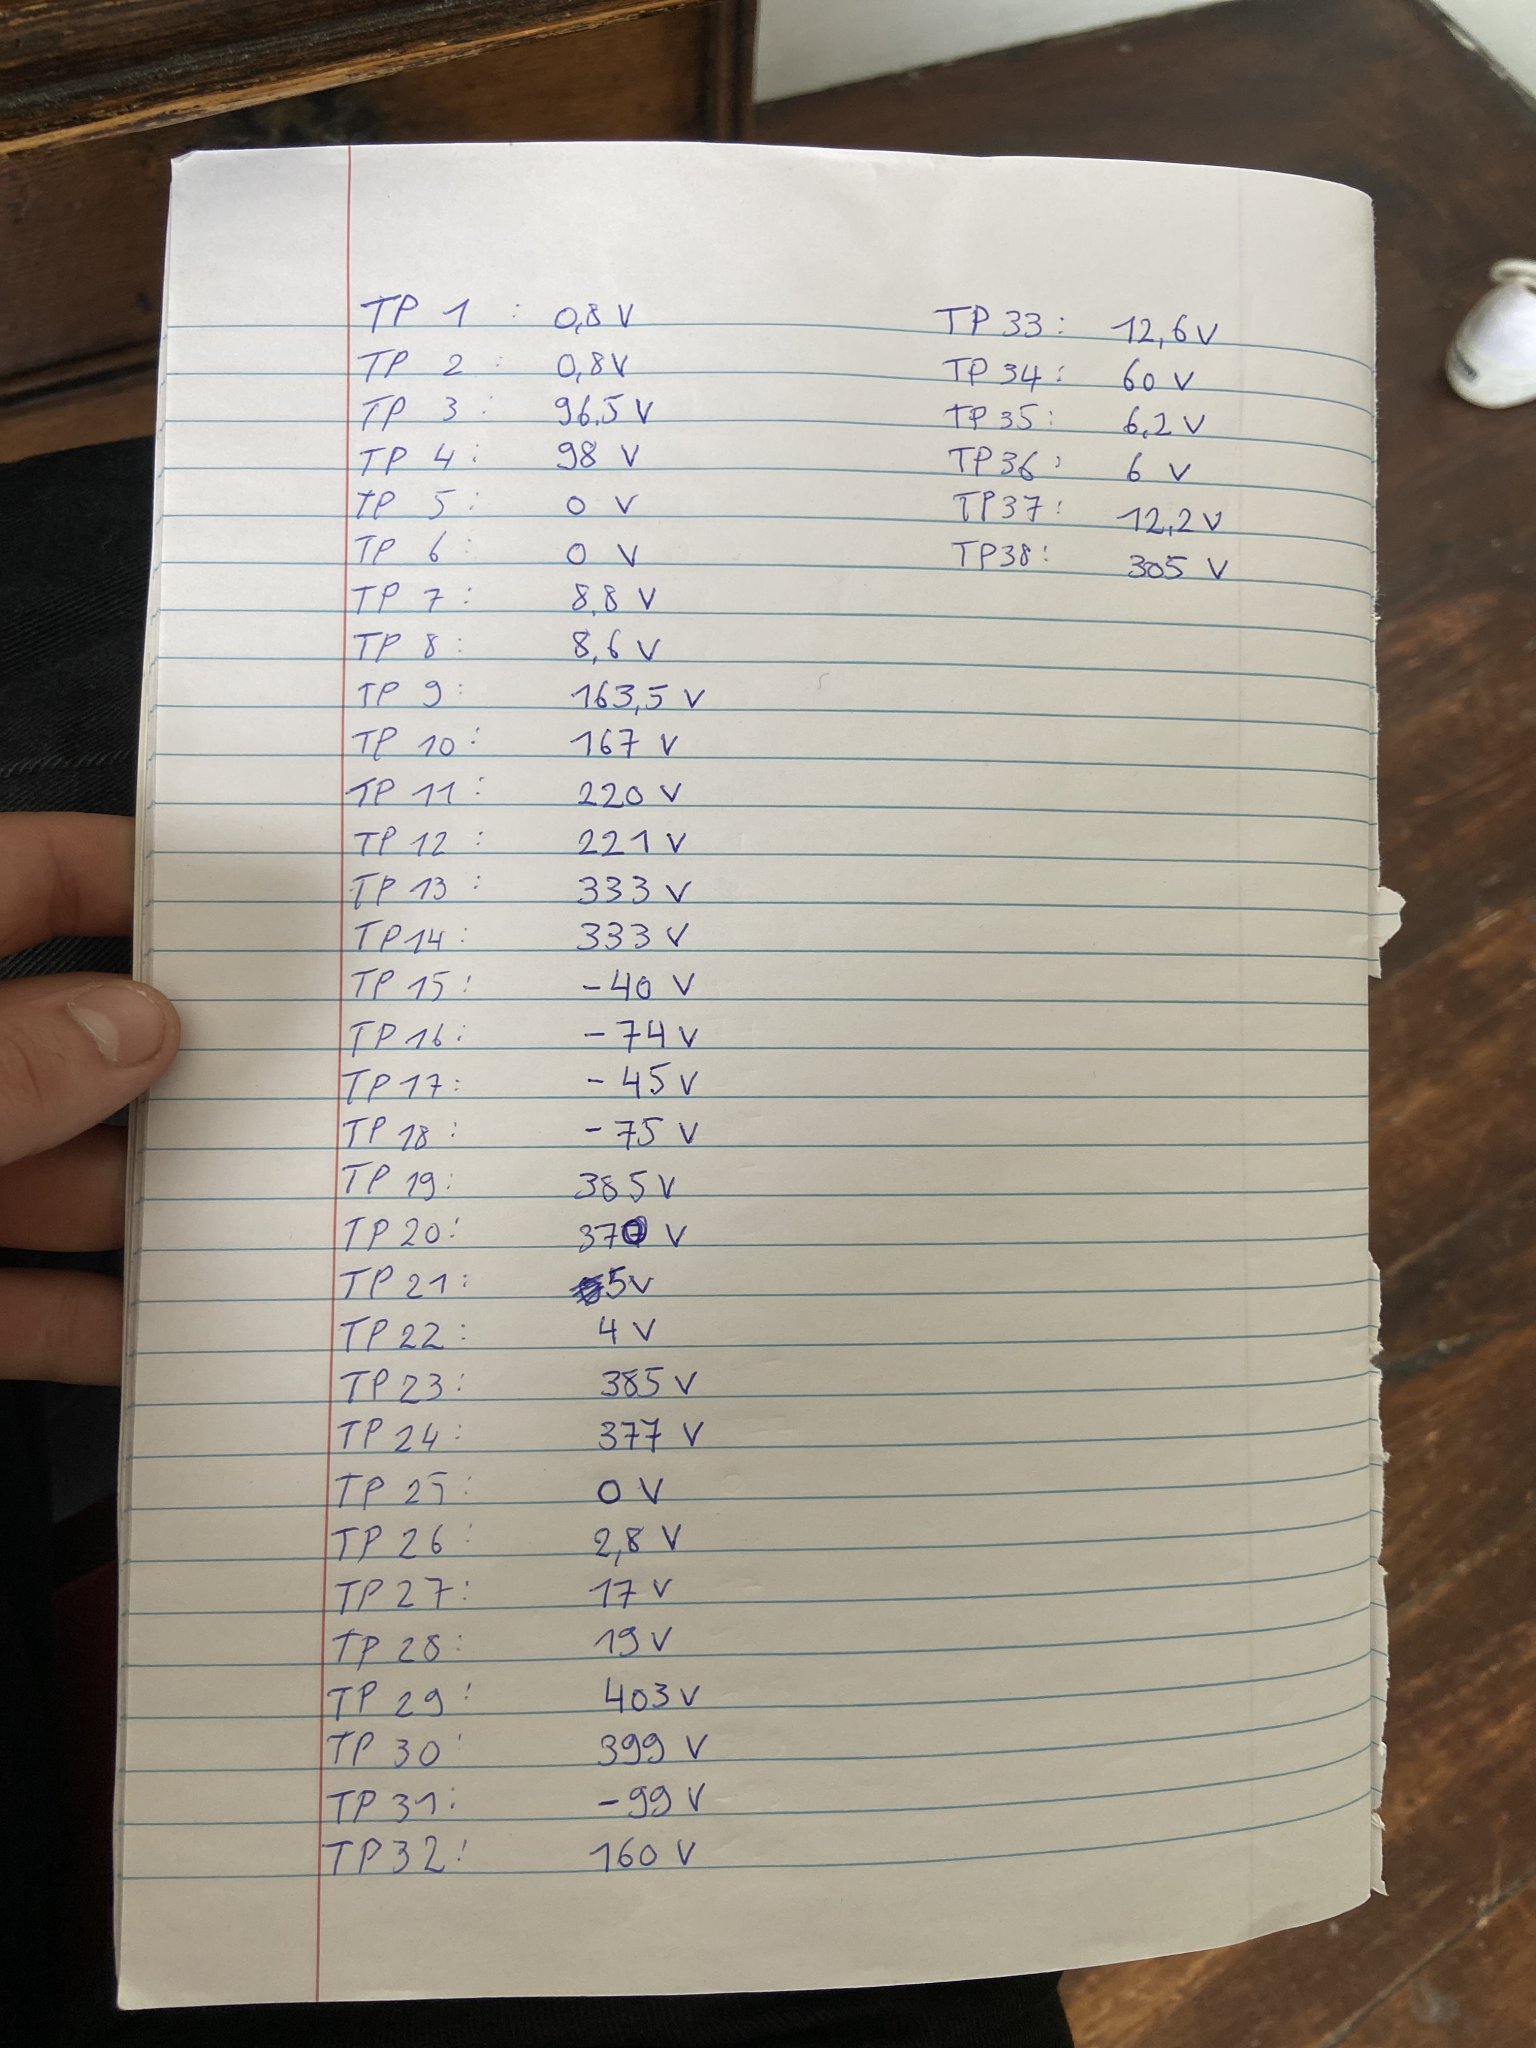 TP 1 : 0,8 V
TP 2 : 0,8 V
TP 3 : 96.5 V
TP 4 : 98 V
TP 5 : 0 V
TP 6 : 0 V
TP 7 : 8,8 V
TP 8 : 8,6 V
TP 9 : 163,5 V
TP 10 : 167 V
TP 11 : 220 V
TP 12 : 221 V
TP 13 : 333 V
TP 14 : 333 V
TP 15 : -40 V
TP 16 : -74 V
TP 17 : -45 V
TP 18 : -75 V
TP 19 : 385 V
TP 20 : 370 V
TP 21 : 5 V
TP 22 : 4 V
TP 23 : 385 V
TP 24 : 377 V
TP 25 : 0 V
TP 26 : 2,8 V
TP 27 : 17 V
TP 28 : 19 V
TP 29 : 403 V
TP 30 : 399 V
TP 31 : -99 V
TP 32 : 160 V
TP 33 : 12,6 V
TP 34 : 60 V
TP 35 : 6,2 V
TP 36 : 6 V
TP 37 : 12,2 V
TP 38 : 305 V